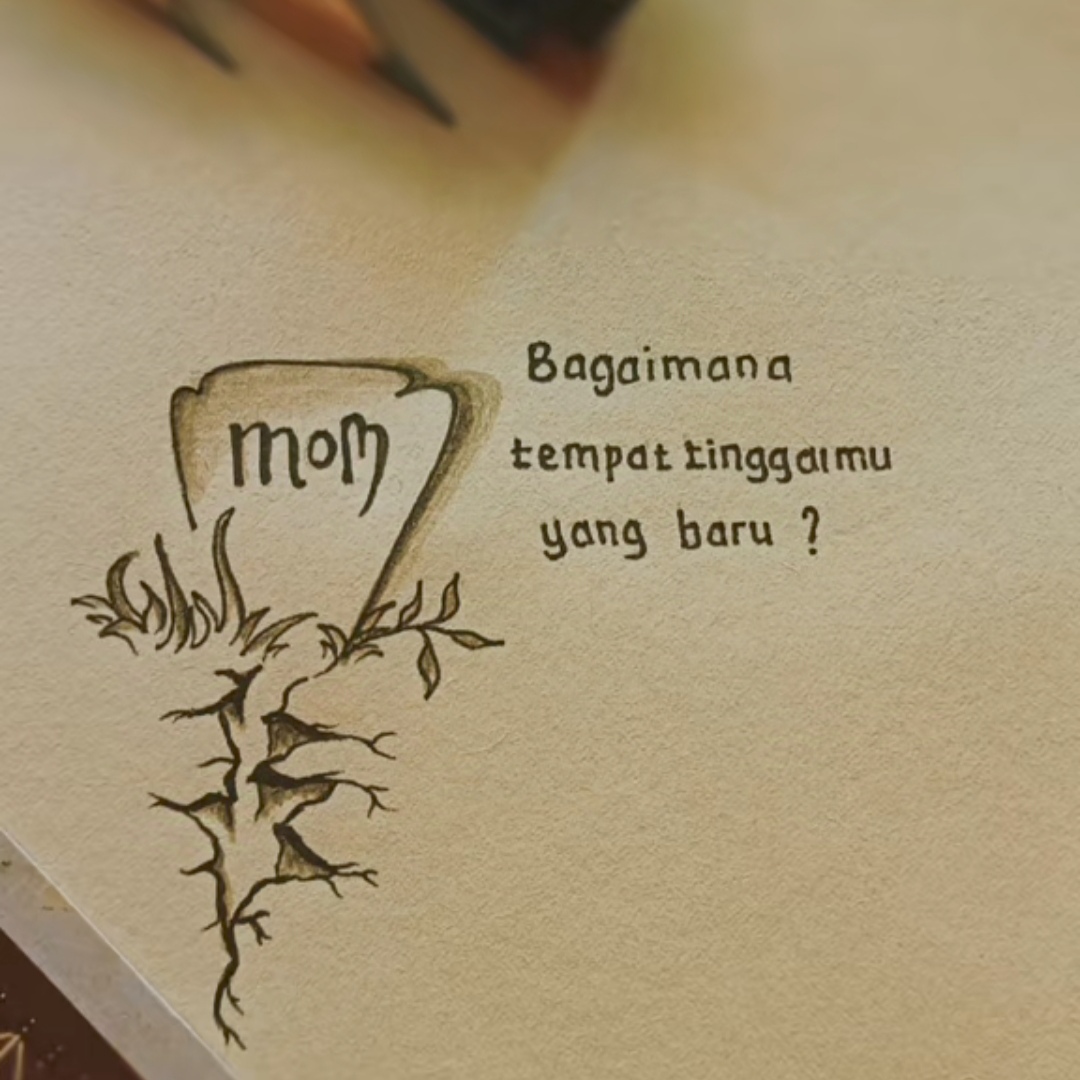 mom
Bagaimana
tempat tinggalmu
yang baru ?